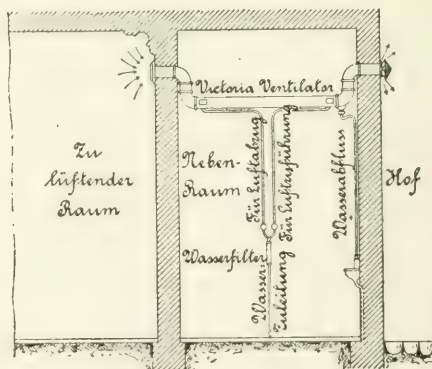 Victoria Ventilator
Zu
lüftender
Raum
Neben-
Raum
Für Luftabzug
Für Luftzuführung
Wasserabfluss
Hof
Wasserfilter
Wasser-
Zuleitung